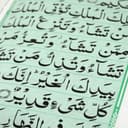 الْمُلْكَ مَنْ تَشَاءُ وَتَنْزِعُ الْمُلْكَ
مِمَّنْ تَشَاءُ وَتُعِزُّ مَنْ
تَشَاءُ وَتُذِلُّ مَنْ تَشَاءُ
بِيَدِكَ الْخَيْرُ إِنَّكَ
كُلِّ شَيْءٍ قَدِيرٌ
فِي النَّهَارِ